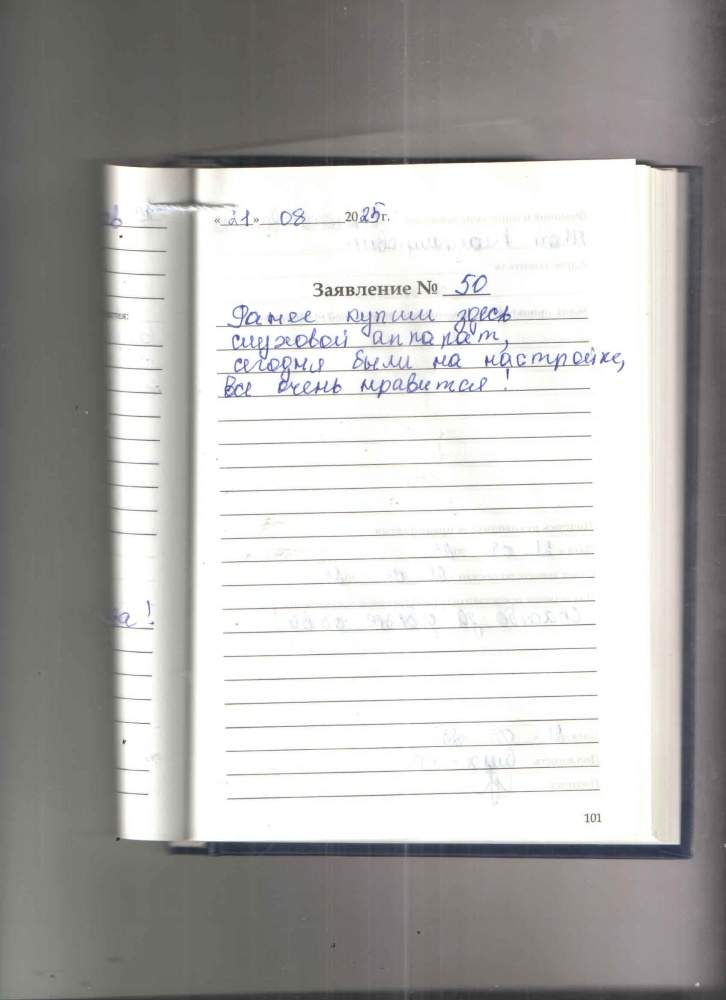 «21» 08 2025г.
Заявление № 50
Ранее купили здесь
слуховой аппарат,
сегодня были на настройке,
все очень нравится!
101